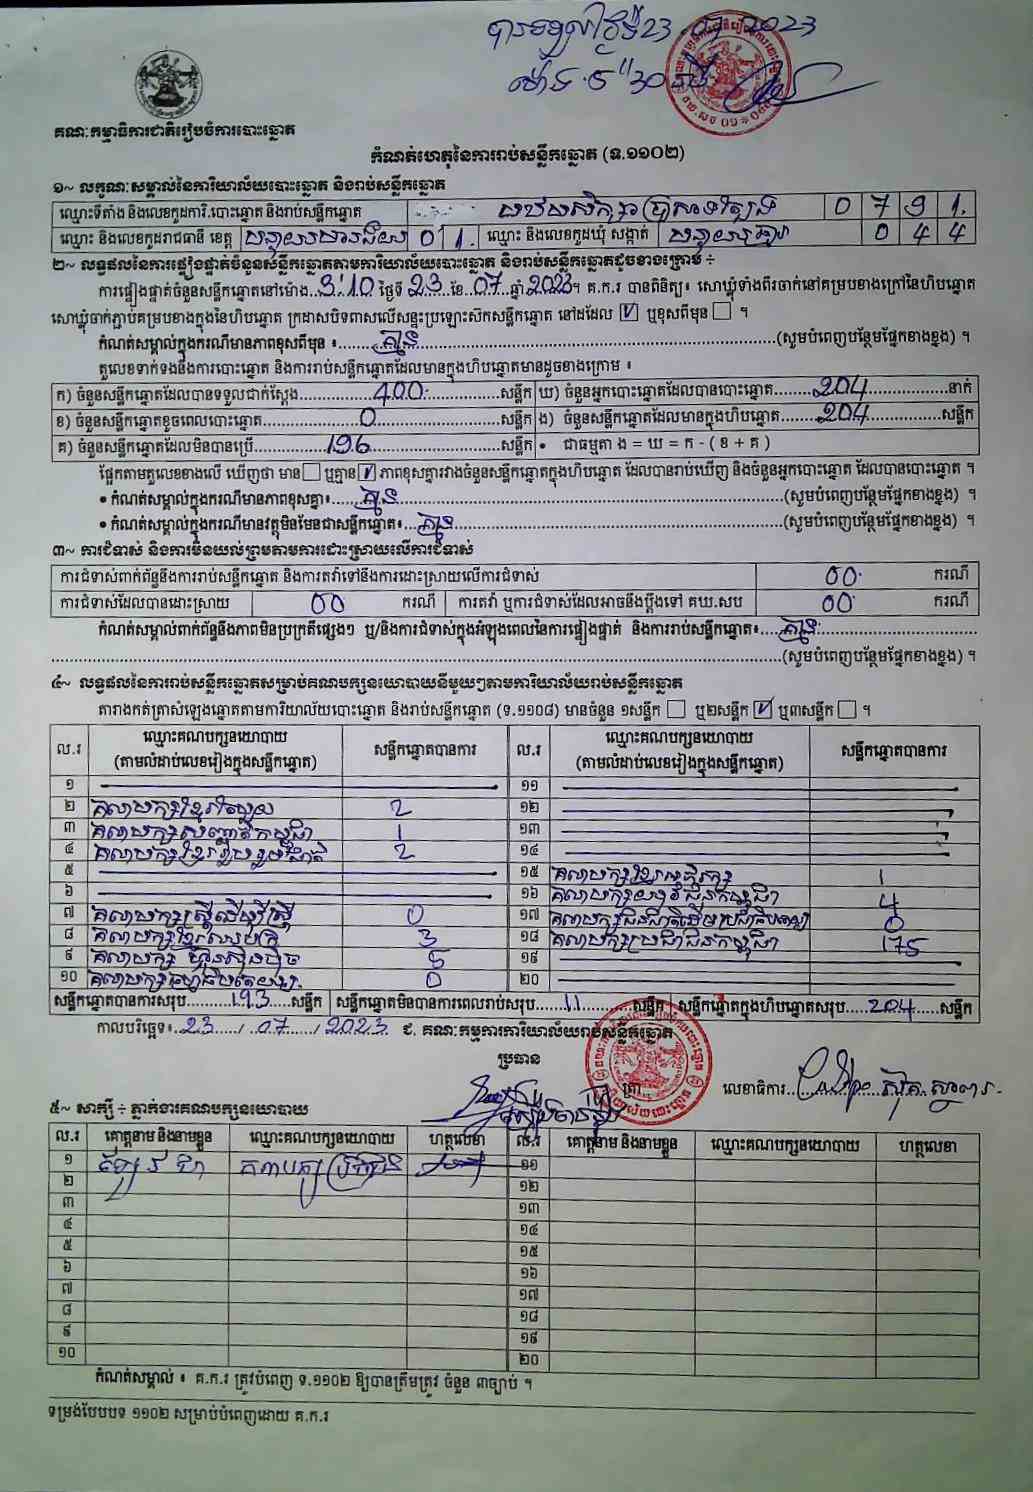 គណៈកម្មាធិការជាតិរៀបចំការបោះឆ្នោត
កំណត់ហេតុនៃការរាប់សន្លឹកឆ្នោត (ទ.១១០២)
១~ លក្ខណៈសម្គាល់នៃការិយាល័យបោះឆ្នោត និងរាប់សន្លឹកឆ្នោត
ឈ្មោះទីតាំង និងលេខកូដការិ.បោះឆ្នោត និងរាប់សន្លឹកឆ្នោត 0 7 9 1
ឈ្មោះ និងលេខកូដរាជធានី ខេត្ត បន្ទាយមានជ័យ 0 1 ឈ្មោះ និងលេខកូដឃុំ សង្កាត់ 0 4 4
២~ លទ្ធផលនៃការផ្ទៀងផ្ទាត់ចំនួនសន្លឹកឆ្នោតតាមការិយាល័យបោះឆ្នោត និងរាប់សន្លឹកឆ្នោតដូចខាងក្រោម ÷
ការផ្ទៀងផ្ទាត់ចំនួនសន្លឹកឆ្នោតនៅម៉ោង 3:10 ថ្ងៃទី 23 ខែ 07 ឆ្នាំ 2023 ។ គ.ក.រ បានពិនិត្យ៖ សោឃ្លុំទាំងពីរចាក់នៅគម្របខាងក្រៅនៃហិបឆ្នោត
សោឃ្លុំចាក់ភ្ជាប់គម្របខាងក្នុងនៃហិបឆ្នោត ក្រដាសបិទពាសលើសន្ទះប្រឡោះសឹកសន្លឹកឆ្នោត នៅដដែល ☑ ឬខុសពីមុន ☐ ។
កំណត់សម្គាល់ក្នុងករណីមានភាពខុសពីមុន ៖ គ្មាន (សូមបំពេញបន្ថែមផ្នែកខាងខ្នង) ។
តួលេខទាក់ទងនឹងការបោះឆ្នោត និងការរាប់សន្លឹកឆ្នោតដែលមានក្នុងហិបឆ្នោតមានដូចខាងក្រោម ៖
ក) ចំនួនសន្លឹកឆ្នោតដែលបានទទួលជាក់ស្ដែង 400 សន្លឹក ឃ) ចំនួនអ្នកបោះឆ្នោតដែលបានបោះឆ្នោត 204 នាក់
ខ) ចំនួនសន្លឹកឆ្នោតខូចពេលបោះឆ្នោត 0 សន្លឹក ង) ចំនួនសន្លឹកឆ្នោតដែលមានក្នុងហិបឆ្នោត 204 សន្លឹក
គ) ចំនួនសន្លឹកឆ្នោតដែលមិនបានប្រើ 196 សន្លឹក • ជាធម្មតា ង = ឃ = ក - ( ខ + គ )
ផ្អែកតាមតួលេខខាងលើ ឃើញថា មាន ☐ ឬគ្មាន ☑ ភាពខុសគ្នារវាងចំនួនសន្លឹកឆ្នោតក្នុងហិបឆ្នោត ដែលបានរាប់ឃើញ និងចំនួនអ្នកបោះឆ្នោត ដែលបានបោះឆ្នោត ។
• កំណត់សម្គាល់ក្នុងករណីមានភាពខុសគ្នា៖ គ្មាន (សូមបំពេញបន្ថែមផ្នែកខាងខ្នង) ។
• កំណត់សម្គាល់ក្នុងករណីមានវត្ថុមិនមែនជាសន្លឹកឆ្នោត៖ គ្មាន (សូមបំពេញបន្ថែមផ្នែកខាងខ្នង) ។
៣~ ការជំទាស់ និងការមិនយល់ព្រមតាមការដោះស្រាយលើការជំទាស់
ការជំទាស់ពាក់ព័ន្ធនឹងការរាប់សន្លឹកឆ្នោត និងការតវ៉ាទៅនឹងការដោះស្រាយលើការជំទាស់ 00 ករណី
ការជំទាស់ដែលបានដោះស្រាយ 00 ករណី ការតវ៉ា ឬការជំទាស់ដែលអាចនឹងប្ដឹងទៅ គឃ.សប 00 ករណី
កំណត់សម្គាល់ពាក់ព័ន្ធនឹងភាពមិនប្រក្រតីផ្សេងៗ ឬ/និងការជំទាស់ក្នុងអំឡុងពេលនៃការផ្ទៀងផ្ទាត់ និងការរាប់សន្លឹកឆ្នោត៖ គ្មាន
(សូមបំពេញបន្ថែមផ្នែកខាងខ្នង) ។
៤~ លទ្ធផលនៃការរាប់សន្លឹកឆ្នោតសម្រាប់គណបក្សនយោបាយនីមួយៗតាមការិយាល័យរាប់សន្លឹកឆ្នោត
តារាងកត់ត្រាសំឡេងឆ្នោតតាមការិយាល័យបោះឆ្នោត និងរាប់សន្លឹកឆ្នោត (ទ.១១០៨) មានចំនួន ១សន្លឹក ☐ ឬ២សន្លឹក ☑ ឬ៣សន្លឹក ☐ ។
ល.រ ឈ្មោះគណបក្សនយោបាយ (តាមលំដាប់លេខរៀងក្នុងសន្លឹកឆ្នោត) សន្លឹកឆ្នោតបានការ ល.រ ឈ្មោះគណបក្សនយោបាយ (តាមលំដាប់លេខរៀងក្នុងសន្លឹកឆ្នោត) សន្លឹកឆ្នោតបានការ
១ ១១
២ 2 ១២
៣ 1 ១៣
៤ គណបក្សខ្មែររួបរួមជាតិ 2 ១៤
៥ ១៥ 1
៦ ១៦ 4
៧ គណបក្សស្ត្រីដើម្បីស្ត្រី 0 ១៧ 0
៨ 3 ១៨ គណបក្សប្រជាជនកម្ពុជា 175
៩ គណបក្ស ហ្វ៊ុនស៊ិនប៉ិច 5 ១៩
១០ គណបក្សធម្មាធិបតេយ្យ 0 ២០
សន្លឹកឆ្នោតបានការសរុប 193 សន្លឹក សន្លឹកឆ្នោតមិនបានការពេលរាប់សរុប 11 សន្លឹក សន្លឹកឆ្នោតក្នុងហិបឆ្នោតសរុប 204 សន្លឹក
កាលបរិច្ឆេទ៖ 23 / 07 / 2023 ជ. គណៈកម្មការការិយាល័យរាប់សន្លឹកឆ្នោត
ប្រធាន
លេខាធិការ
៥~ សាក្សី ÷ ភ្នាក់ងារគណបក្សនយោបាយ
ល.រ គោត្តនាម និងនាមខ្លួន ឈ្មោះគណបក្សនយោបាយ ហត្ថលេខា ល.រ គោត្តនាម និងនាមខ្លួន ឈ្មោះគណបក្សនយោបាយ ហត្ថលេខា
១ ១១
២ ១២
៣ ១៣
៤ ១៤
៥ ១៥
៦ ១៦
៧ ១៧
៨ ១៨
៩ ១៩
១០ ២០
កំណត់សម្គាល់ ៖ គ.ក.រ ត្រូវបំពេញ ទ.១១០២ ឱ្យបានត្រឹមត្រូវ ចំនួន ៣ច្បាប់ ។
ទម្រង់បែបបទ ១១០២ សម្រាប់បំពេញដោយ គ.ក.រ